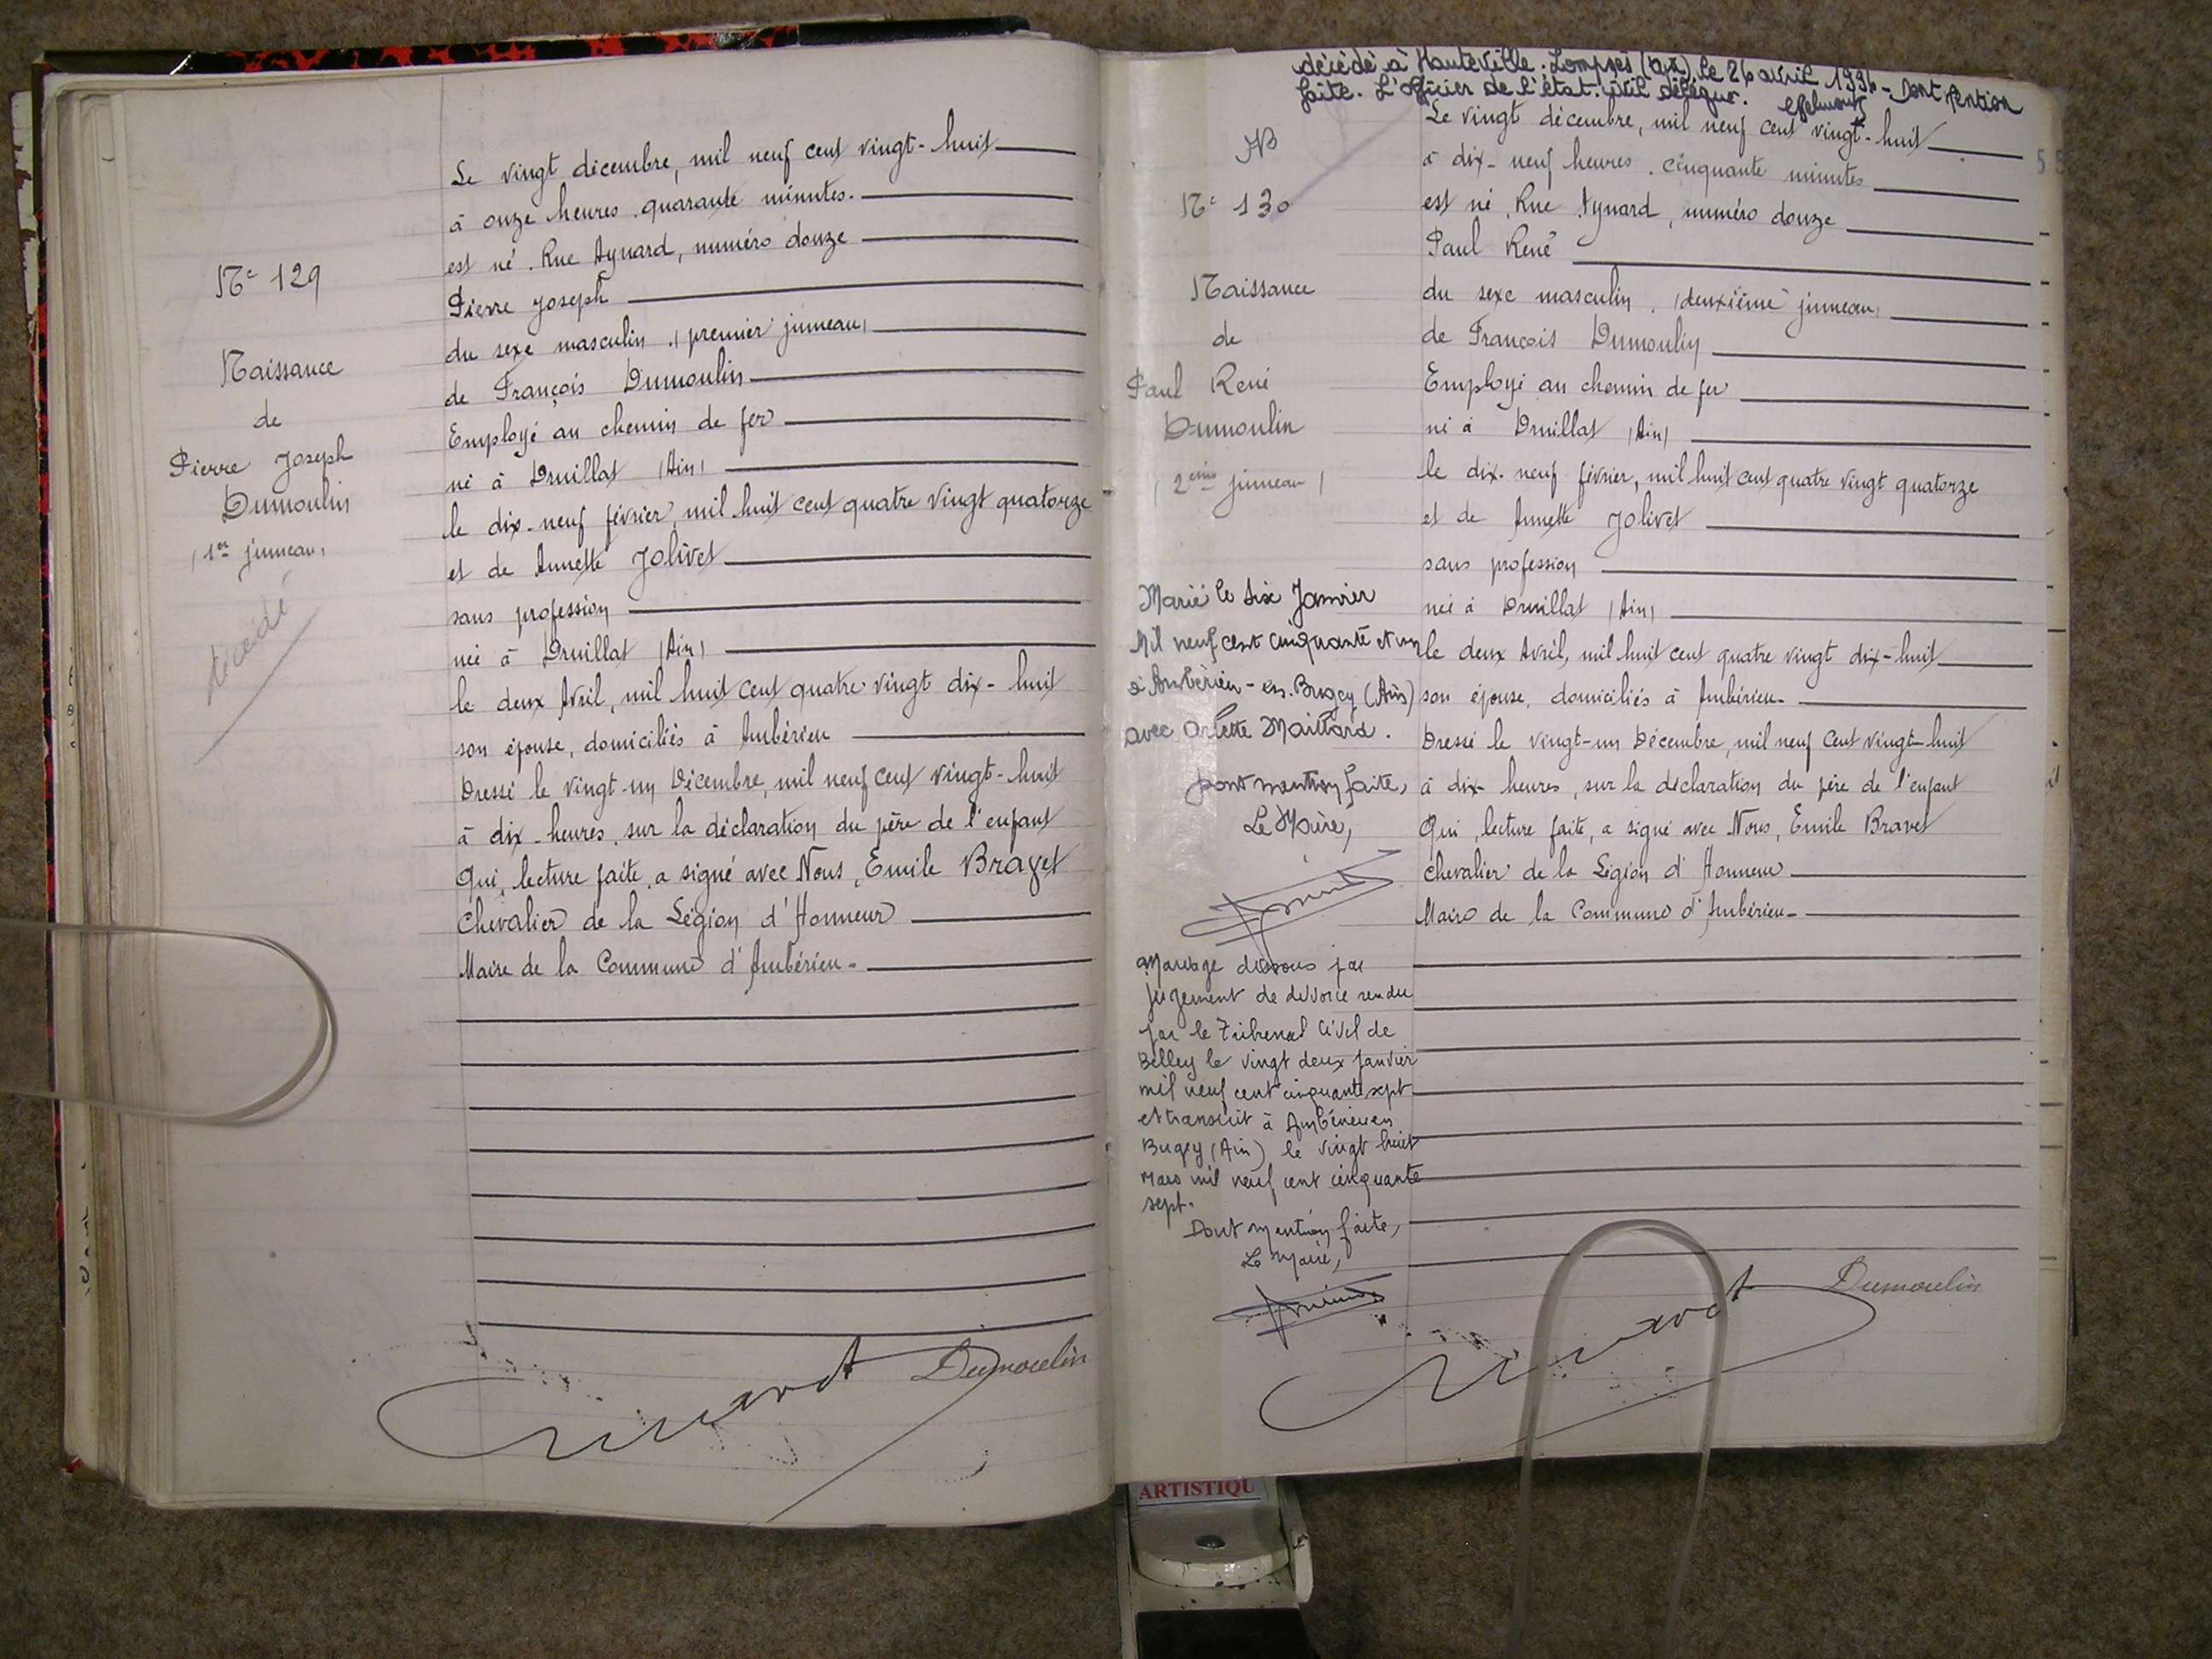 N° 129
Naissance
de
Pierre Joseph
Dumoulin
(1er jumeau)
décédé
Le vingt décembre, mil neuf cent vingt-huit
à onze heures quarante minutes.
est né, Rue Aynard, numéro douze
Pierre Joseph
du sexe masculin, (premier jumeau)
de François Dumoulin
Employé au chemin de fer
né à Druillat (Ain)
le dix-neuf février, mil huit cent quatre vingt quatorze
et de Annette Jolivet
sans profession
née à Druillat (Ain)
le deux Avril, mil huit cent quatre-vingt dix-huit
son épouse, domiciliés à Ambérieu
Dressé le vingt-un Décembre, mil neuf cent vingt-huit
à dix heures, sur la déclaration du père de l'enfant
Qui, lecture faite, a signé avec Nous, Emile Bravet
Chevalier de la Légion d'Honneur
Maire de la Commune d'Ambérieu.
Dumoulin
décédé à Hauteville-Lompnes (Ain), le 26 avril 1996 - Dont Mention
faite. L'Officier de l'état-civil délégué.
N° 130
Naissance
de
Paul René
Dumoulin
(2ème jumeau)
Marié le six Janvier
Mil neuf cent cinquante et un
à Ambérieu-en-Bugey (Ain)
avec Arlette Maillard.
Dont mention faite,
Le Maire,
Mariage dissous par
jugement de divorce rendu
par le Tribunal Civil de
Belley le vingt deux janvier
mil neuf cent cinquante sept
et transcrit à Ambérieu en
Bugey (Ain) le vingt huit
Mars mil neuf cent cinquante
sept.
Dont mention faite,
Le Maire,
Le vingt décembre, mil neuf cent vingt-huit
à dix-neuf heures cinquante minutes
est né, Rue Aynard, numéro douze
Paul René
du sexe masculin, (deuxième jumeau)
de François Dumoulin
Employé au chemin de fer
né à Druillat (Ain)
le dix-neuf février, mil huit cent quatre vingt quatorze
et de Annette Jolivet
sans profession
née à Druillat (Ain)
le deux Avril, mil huit cent quatre vingt dix-huit
son épouse, domiciliés à Ambérieu.
Dressé le vingt-un Décembre, mil neuf cent vingt-huit
à dix heures, sur la déclaration du père de l'enfant
Qui, lecture faite, a signé avec Nous, Emile Bravet
Chevalier de la Légion d'Honneur
Maire de la Commune d'Ambérieu.
Dumoulin
ARTISTIQU